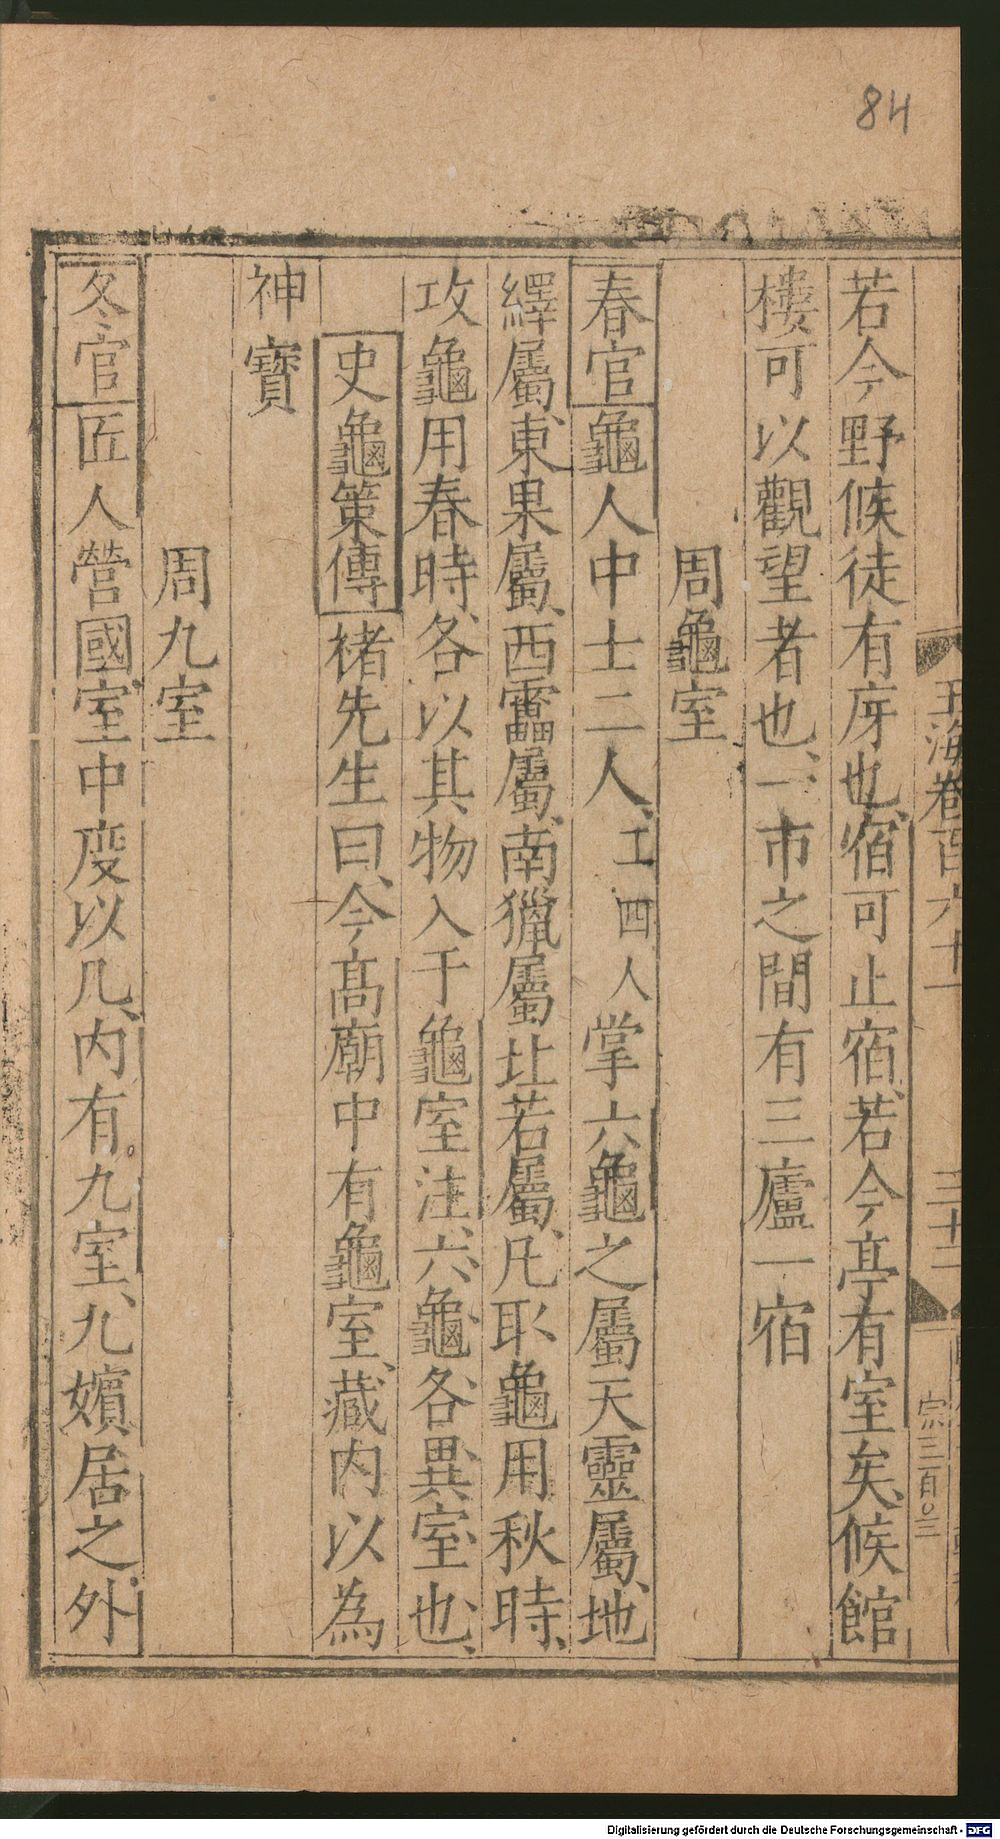 84
玉海卷百六十一 三十二
宗三百〇三
若今野候徒有庌也宿可止宿若今亭有室矣候館
樓可以觀望者也一市之間有三廬一宿
周龜室
春官龜人中士二人工四人掌六龜之屬天靈屬地
繹屬東果屬西靁屬南獵屬北若屬凡取龜用秋時
攻龜用春時各以其物入于龜室注六龜各異室也
史龜策傳褚先生曰今高廟中有龜室藏內以為
神寶
周九室
冬官匠人營國室中度以几內有九室九嬪居之外
Digitalisierung gefördert durch die Deutsche Forschungsgemeinschaft - DFG